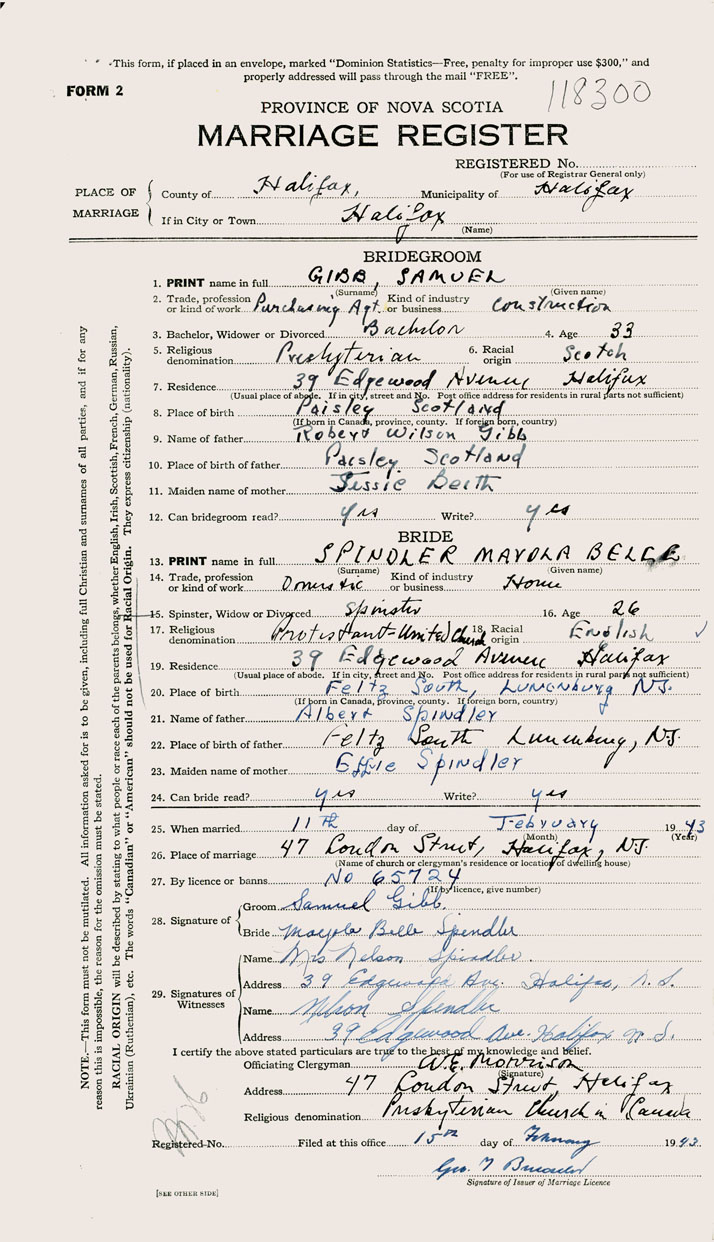 This form, if placed in an envelope, marked "Dominion Statistics—Free, penalty for improper use $300," and
properly addressed will pass through the mail "FREE".
FORM 2
118300
PROVINCE OF NOVA SCOTIA
MARRIAGE REGISTER
REGISTERED No.
(For use of Registrar General only)
PLACE OF MARRIAGE
County of Halifax, Municipality of Halifax
If in City or Town Halifax
(Name)
BRIDEGROOM
1. PRINT name in full GIBB, SAMUEL
(Surname) (Given name)
2. Trade, profession or kind of work Purchasing Agt. Kind of industry or business Construction
3. Bachelor, Widower or Divorced Bachelor 4. Age 33
5. Religious denomination Presbyterian 6. Racial origin Scotch
7. Residence 39 Edgewood Avenue Halifax
(Usual place of abode. If in city, street and No. Post office address for residents in rural parts not sufficient)
8. Place of birth Paisley Scotland
(If born in Canada, province, county. If foreign born, country)
9. Name of father Robert Wilson Gibb
10. Place of birth of father Paisley Scotland
11. Maiden name of mother Jessie Beith
12. Can bridegroom read? yes Write? yes
BRIDE
13. PRINT name in full SPINDLER MAYOLA BELLE
(Surname) (Given name)
14. Trade, profession or kind of work Domestic Kind of industry or business Home
15. Spinster, Widow or Divorced Spinster 16. Age 26
17. Religious denomination Protestant-United Church 18. Racial origin English
19. Residence 39 Edgewood Avenue Halifax
(Usual place of abode. If in city, street and No. Post office address for residents in rural parts not sufficient)
20. Place of birth Feltz South, Lunenburg N.S.
(If born in Canada, province, county. If foreign born, country)
21. Name of father Albert Spindler
22. Place of birth of father Feltz South Lunenburg, N.S.
23. Maiden name of mother Effie Spindler
24. Can bride read? yes Write? yes
25. When married 11th day of February 1943
(Month) (Year)
26. Place of marriage 47 London Street, Halifax, N.S.
(Name of church or clergyman's residence or location of dwelling house)
27. By licence or banns No 65724
(If by licence, give number)
28. Signature of
Groom Samuel Gibb.
Bride Mayola Belle Spindler
29. Signatures of Witnesses
Name Mrs Nelson Spindler.
Address 39 Edgewood Av. Halifax, N.S.
Name Nelson Spindler
Address 39 Edgewood Ave. Halifax N.S.
I certify the above stated particulars are true to the best of my knowledge and belief.
Officiating Clergyman A.E. Morrison
(Signature)
Address 47 London Street, Halifax
Religious denomination Presbyterian Church in Canada
Registered No. Filed at this office 15th day of February 1943
Geo. T
Signature of Issuer of Marriage Licence
[SEE OTHER SIDE]
NOTE.—This form must not be mutilated. All information asked for is to be given, including full Christian and surnames of all parties, and if for any
reason this is impossible, the reason for the omission must be stated.
RACIAL ORIGIN will be described by stating to what people or race each of the parents belongs, whether English, Irish, Scottish, French, German, Russian,
Ukrainian (Ruthenian), etc. The words "Canadian" or "American" should not be used for Racial Origin. They express citizenship (nationality).